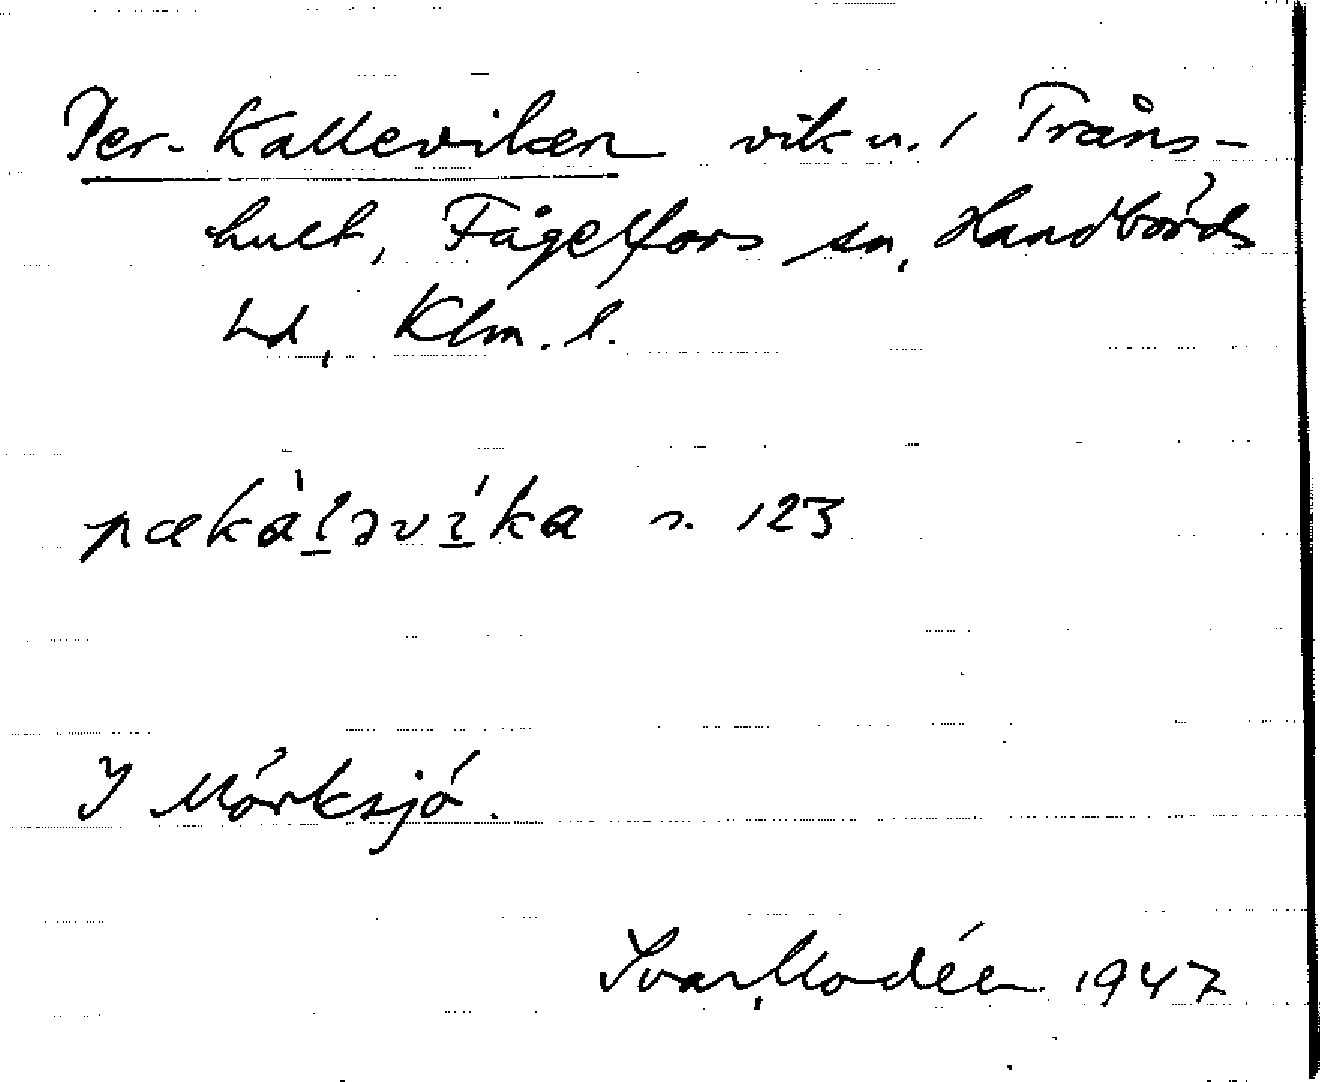 Per-Kalleviken vik u. 1 Tråns-
hult, Fågelfors sn, Handbörds
hd, Klm. l.
pækàl̲əvi̲ka n. 123
I Mörksjö.
Ivar Modéer 1947